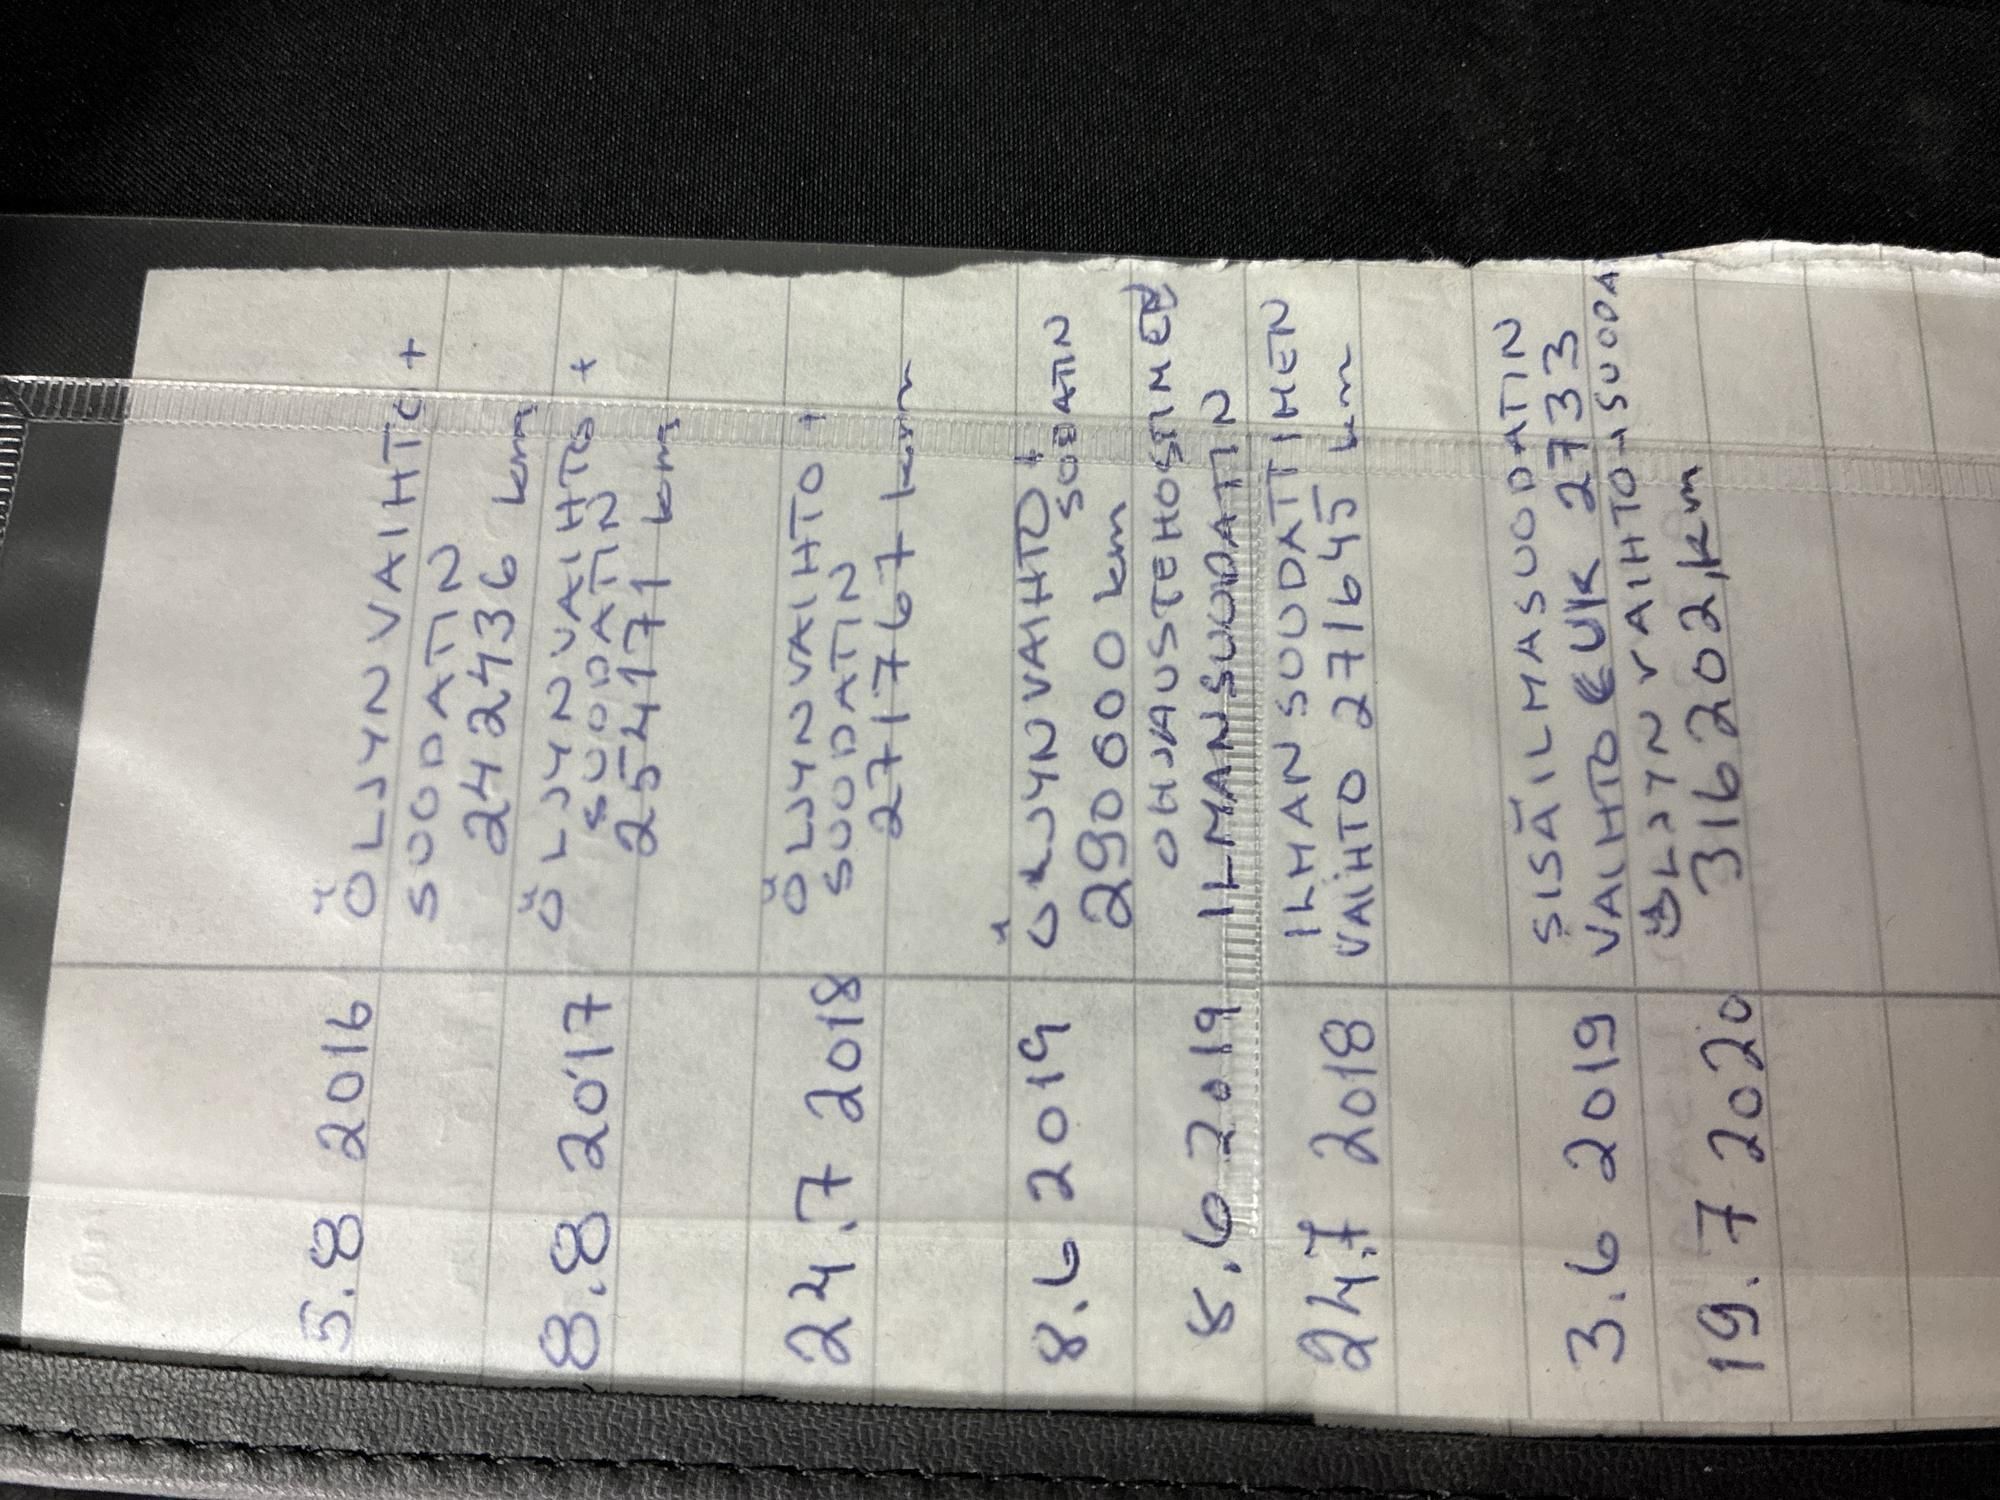 5.8 2016 ÖLJYNVAIHTO +
SUODATIN
242436 km
8.8 2017 ÖLJYNVAIHTO +
SUODATIN
254171 km
24.7 2018 ÖLJYNVAIHTO +
SUODATIN
271767 km
8.6 2019 ÖLJYNVAIHTO +
SUODATIN
290600 km
OHJAUSTEHOSTIMEN
8.6 2019 ILMANSUODATIN
24.7 2018 ILMANSUODATTIMEN
VAIHTO 271645 km
3.6 2019 SISÄILMASUODATIN
VAIHTO CUK 2733
19.7 2020 ÖLJYN VAIHTO + SUODA
316202 km